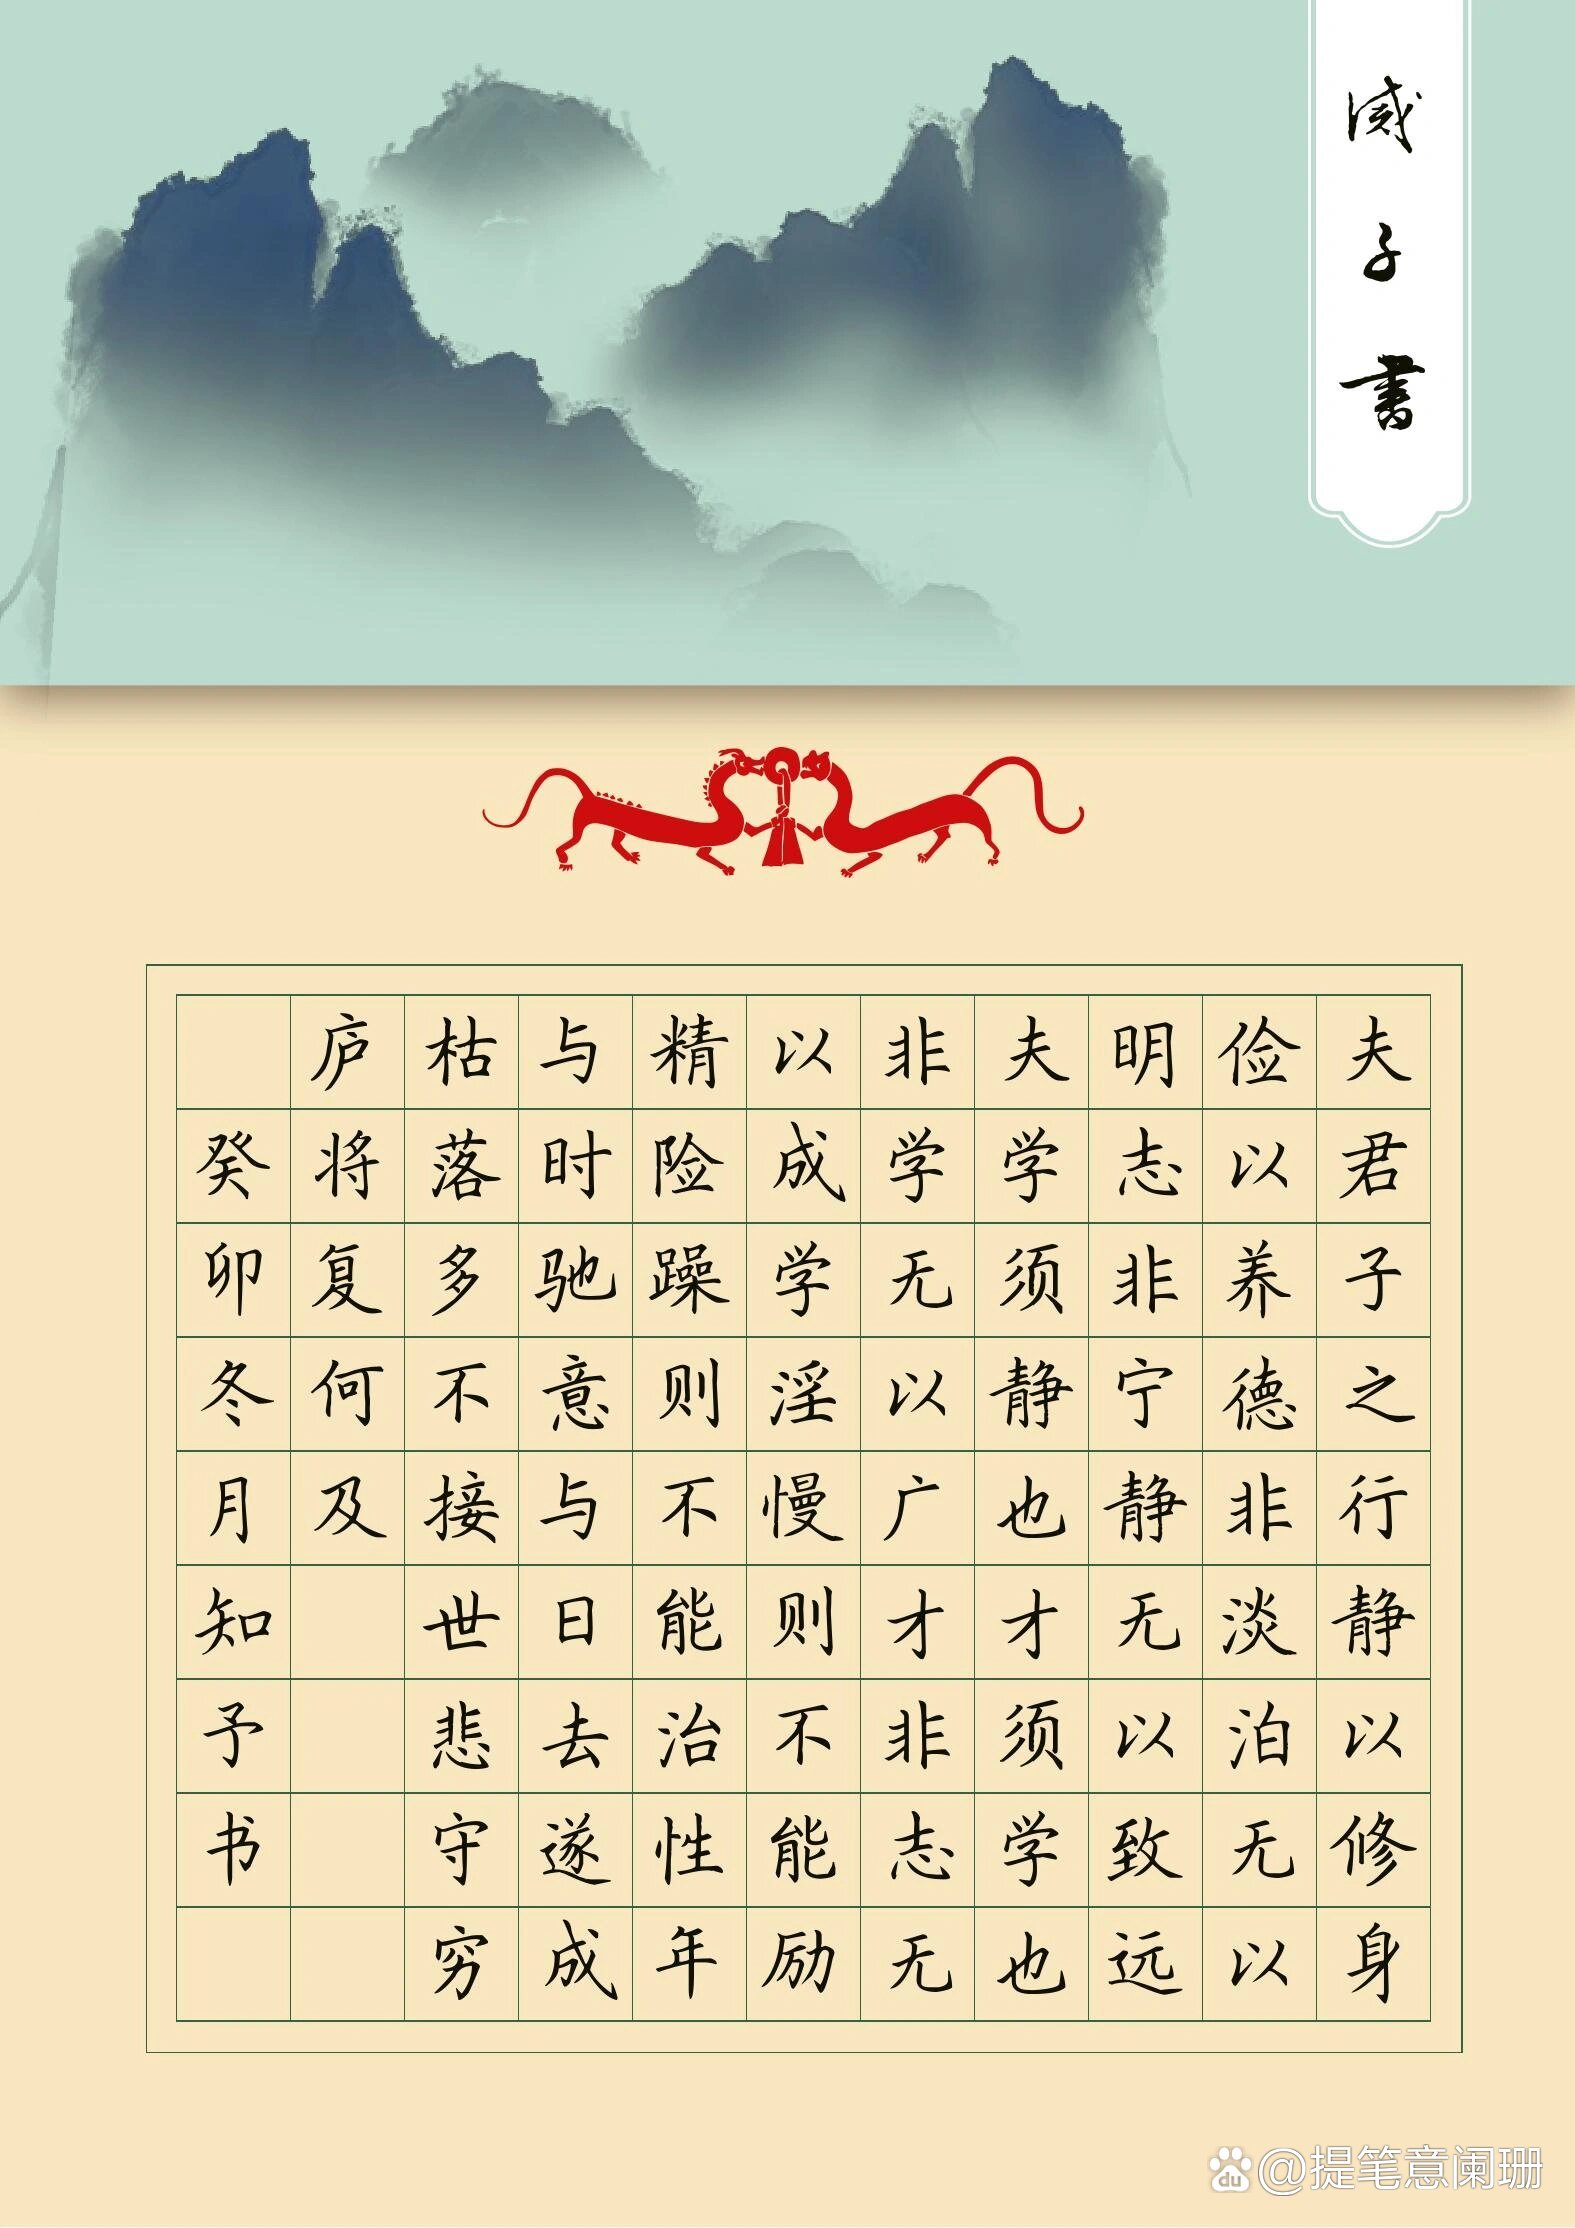 诫子書
夫君子之行静以修身
俭以养德非淡泊无以
明志非宁静无以致远
夫学须静也才须学也
非学无以广才非志无
以成学淫慢则不能励
精险躁则不能治性年
与时驰意与日去遂成
枯落多不接世悲守穷
庐将复何及
癸卯冬月知予书
du @提笔意阑珊